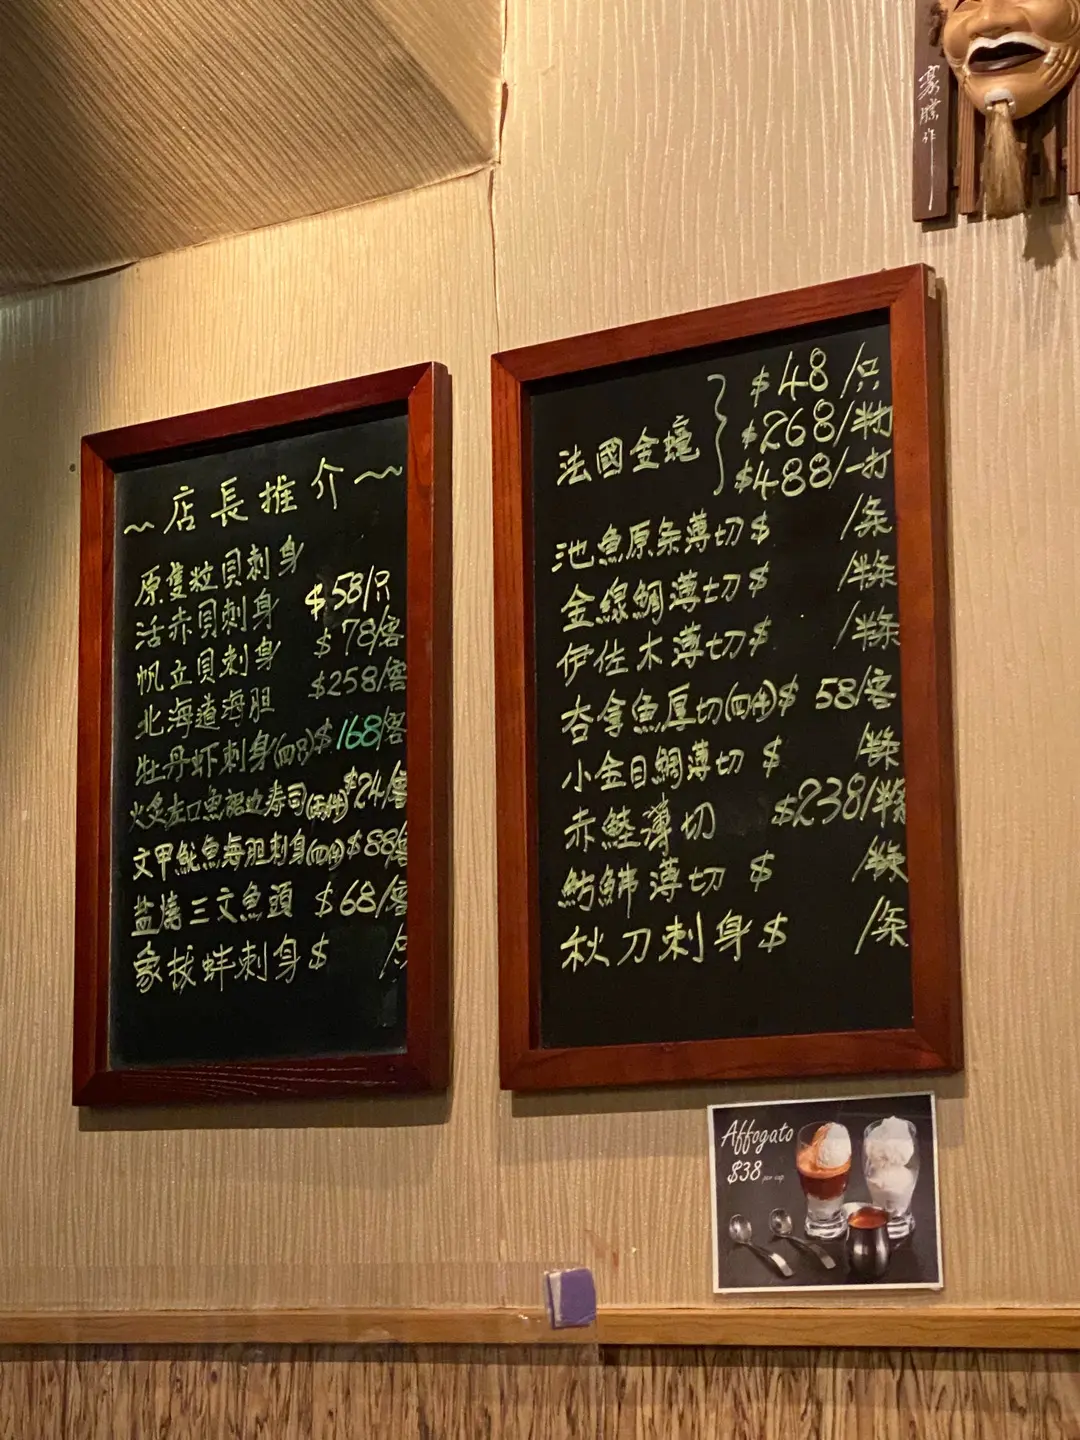 ~店長推介~
原隻粒貝刺身
活赤貝刺身 $58/只
帆立貝刺身 $78/客
北海道海胆 $258/客
牡丹虾刺身(四只)$168/客
火炙左口魚裙边寿司(両件)$24/客
文甲魷魚海胆刺身(四件)$88/客
盐燒三文魚頭 $68/客
象拔蚌刺身 $ /只
法國金蠔 $48/只
$268/半打
$488/一打
池魚原条薄切 $ /条
金線鯛薄切 $ /半条
伊佐木薄切 $ /半条
杏拿魚厚切(四件)$ 58/客
小金目鯛薄切 $ /半条
赤鯥薄切 $238/半条
魴鮄薄切 $ /半条
秋刀刺身 $ /条
Affogato
$38 per cup